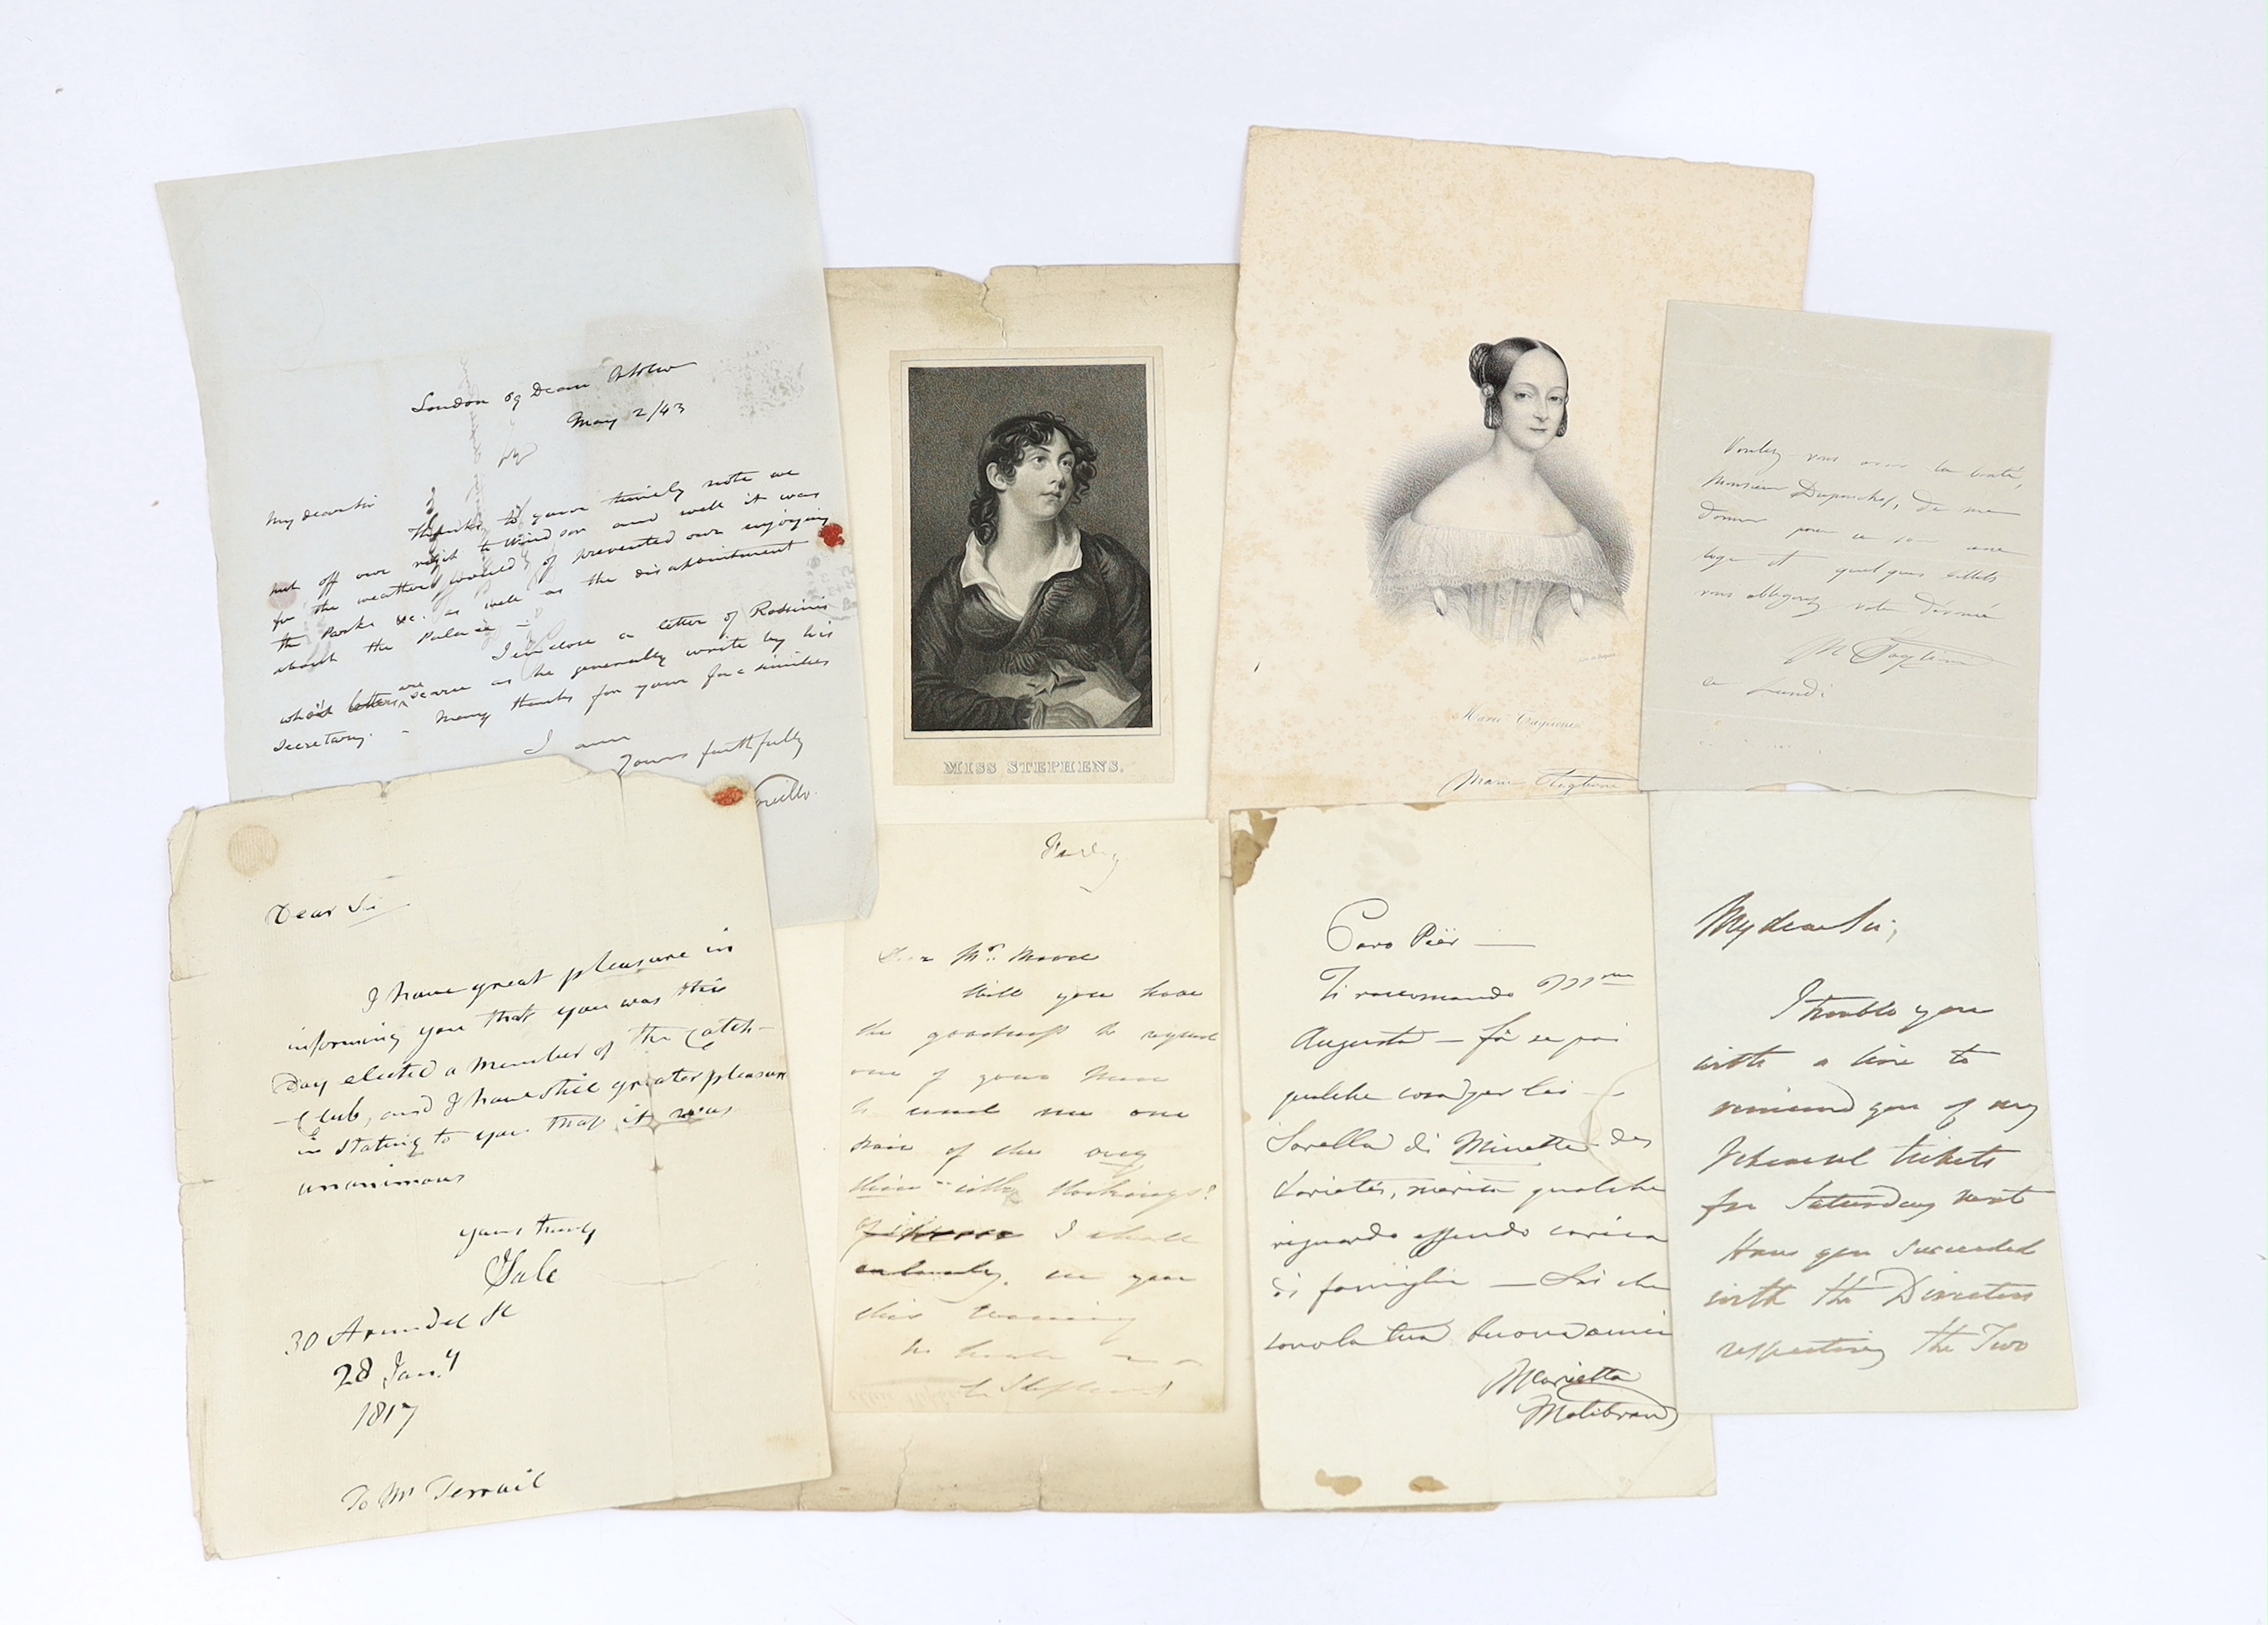 London 69 Dean
May 2/43
My dear Sir
Thanks to your timely note we
put off our visit to Windsor and well it was
for the weather would of prevented our enjoying
the Parks &c. as well as the disapointment
about the Palace -
I enclose a letter of Rossini's
who's letters are scarce as he generally write by his
Secretary. - Many thanks for your fac similies
I am
Yours faithfully
MISS STEPHENS.
Marie Taglioni
Marie Taglioni
Voulez-vous avoir la bonté,
Monsieur Duponchel, de me
donner pour ce soir une
loge et quelques billets
vous obligerez votre dévouée
M Taglioni
ce Lundi
Dear Sir
I have great pleasure in
informing you that you was this
Day elected a Member of the Catch-
-Club, and I have still greater pleasure
in stating to you that it was
unanimous
yours truly
JSale
30 Arundel St
28 Jany
1817
To Mr Terrail
Dear Mr.
Will you have
the goodness to request
one of your
to send me one
pair of the very
thin silk stockings?
I shall
see you
this evening
Caro Pier —
Ti raccomando Mme
Augusta — fà se poi
qualche cosa per lei —
Sorella di Minette des
Varietés, merita qualche
riguardo essendo carica
di famiglia —
sono la tua buona amica
Marietta
Malibran
My dear Sir,
I trouble you
with a line to
remind you of my
Rehearsal tickets
for Saturday next
Have you succeeded
with the Directors
respecting the Two